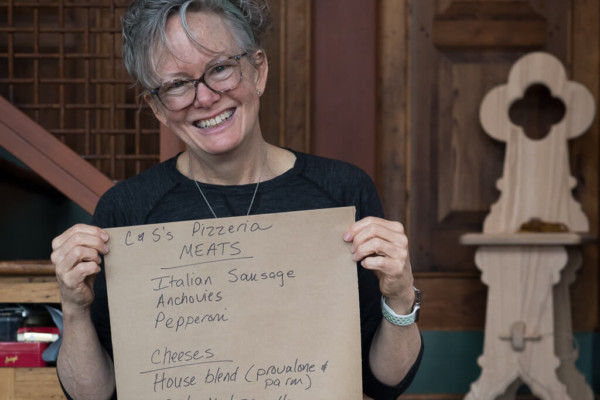 C & S's Pizzeria
MEATS
Italian Sausage
Anchovies
Pepperoni
Cheeses
House blend (provalone &
parm)